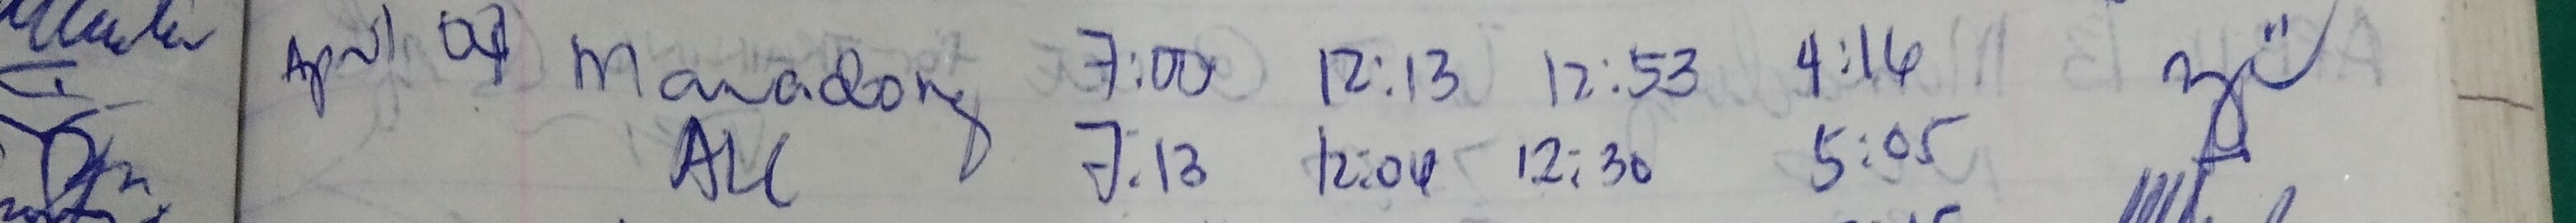 April 07 Manadong 7:00 12:13 12:53 4:14
ALC 7:13 12:04 12:30 5:05